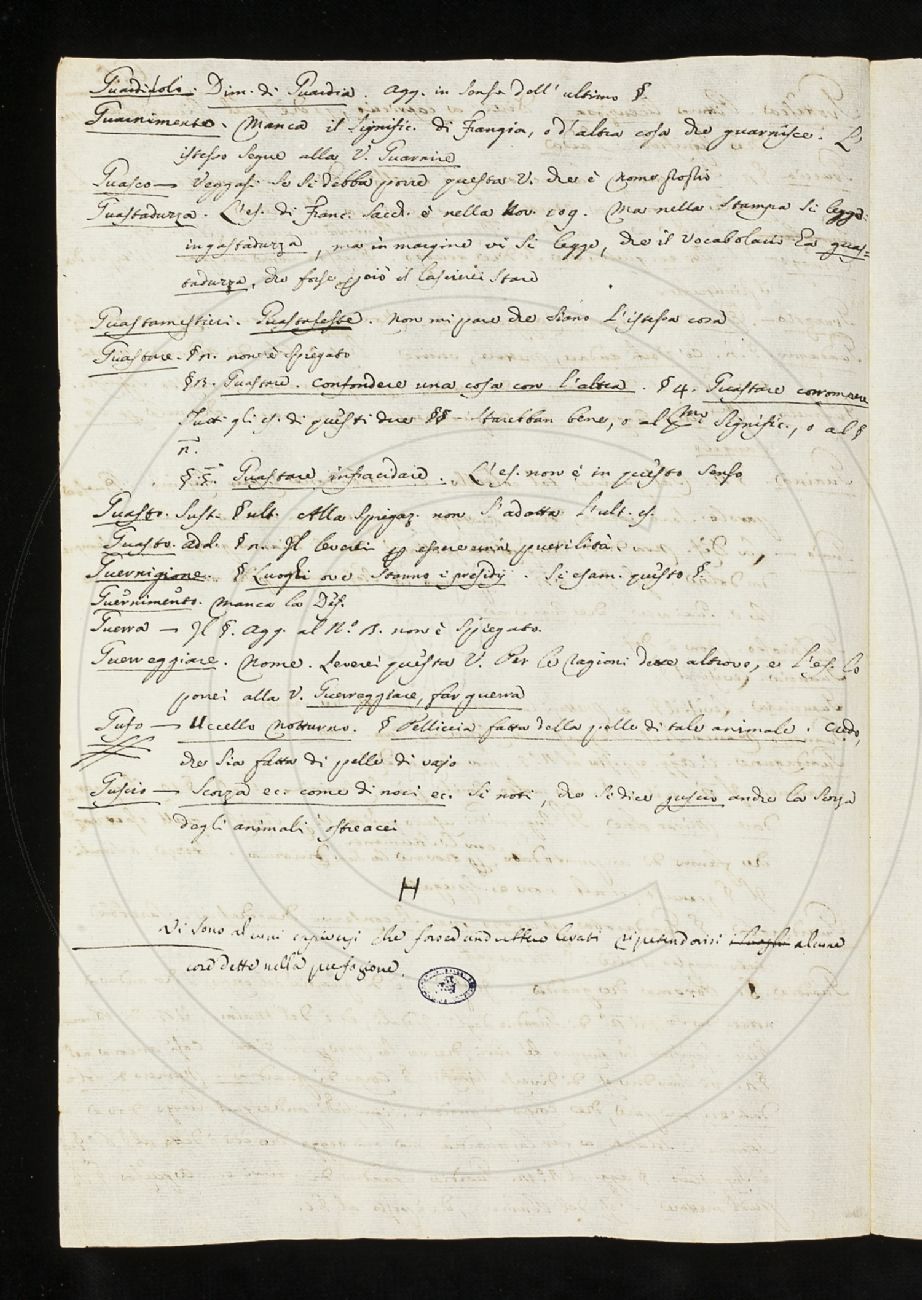 Guardiuola. Dim. di Guardia. Agg. in senso dell' ultimo §.
Guarnimento. Manca il signific. di frangia, o d'altra cosa che guarnisce. L'
istesso segue alla V. Guarnire
Guasco — Veggasi se si debba porre questa V. che è Nome
Guastaduzza. L'es. di Franc. Sacch. è nella Nov. 109. Ma nella Stampa si legge
ingastaduzza, ma in margine vi si legge, che il Vocabolario ha guas=
taduzza, che forse ciò il lascierei stare
Guastamestieri. Guastafeste. Non mi pare che siano l'istessa cosa
Guastare. § n. non è spiegato
§ 13. Guastare. Confondere una cosa con l'altra. § 4. Guastare corrompere
Tutti gli es. di questi due §§ starebban bene, o al p.mo signific., o al §
n.
§. Guastare infracidare. L'es. non è in questo senso
Guasto. Sust. § ult. Alla spiegaz. non s'adatta l'ult. es.
Guasto. add. § n. Il leverei p essere una puerilità
Guernigione. § Luoghi ove stanno i presidj. Si esam. questo §.
Guernimento. Manca la Dif.
Guerra — Il §. Agg. al N.o B. non è spiegato.
Guerreggiare. Nome. Leverei questa V. Per le ragioni dette altrove, e l'es. lo
porrei alla V. Guerreggiare, far guerra
Gufo — Uccello notturno. § Pelliccia fatta della pelle di tale animale. Credo,
che sia fatta di pelle di vajo
Guscio — Scorza ec. come di noci ec. Si noti, che si dice guscio anche la Scorza
degli animali ostreacei
H
Vi sono alcuni che forse andrebbero levati ripetendovisi alcune
cose dette nella prefazione.